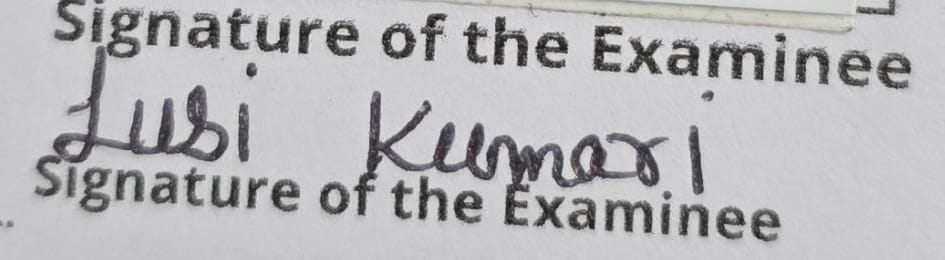 Signature of the Examinee
Lusi Kumari
Signature of the Examinee